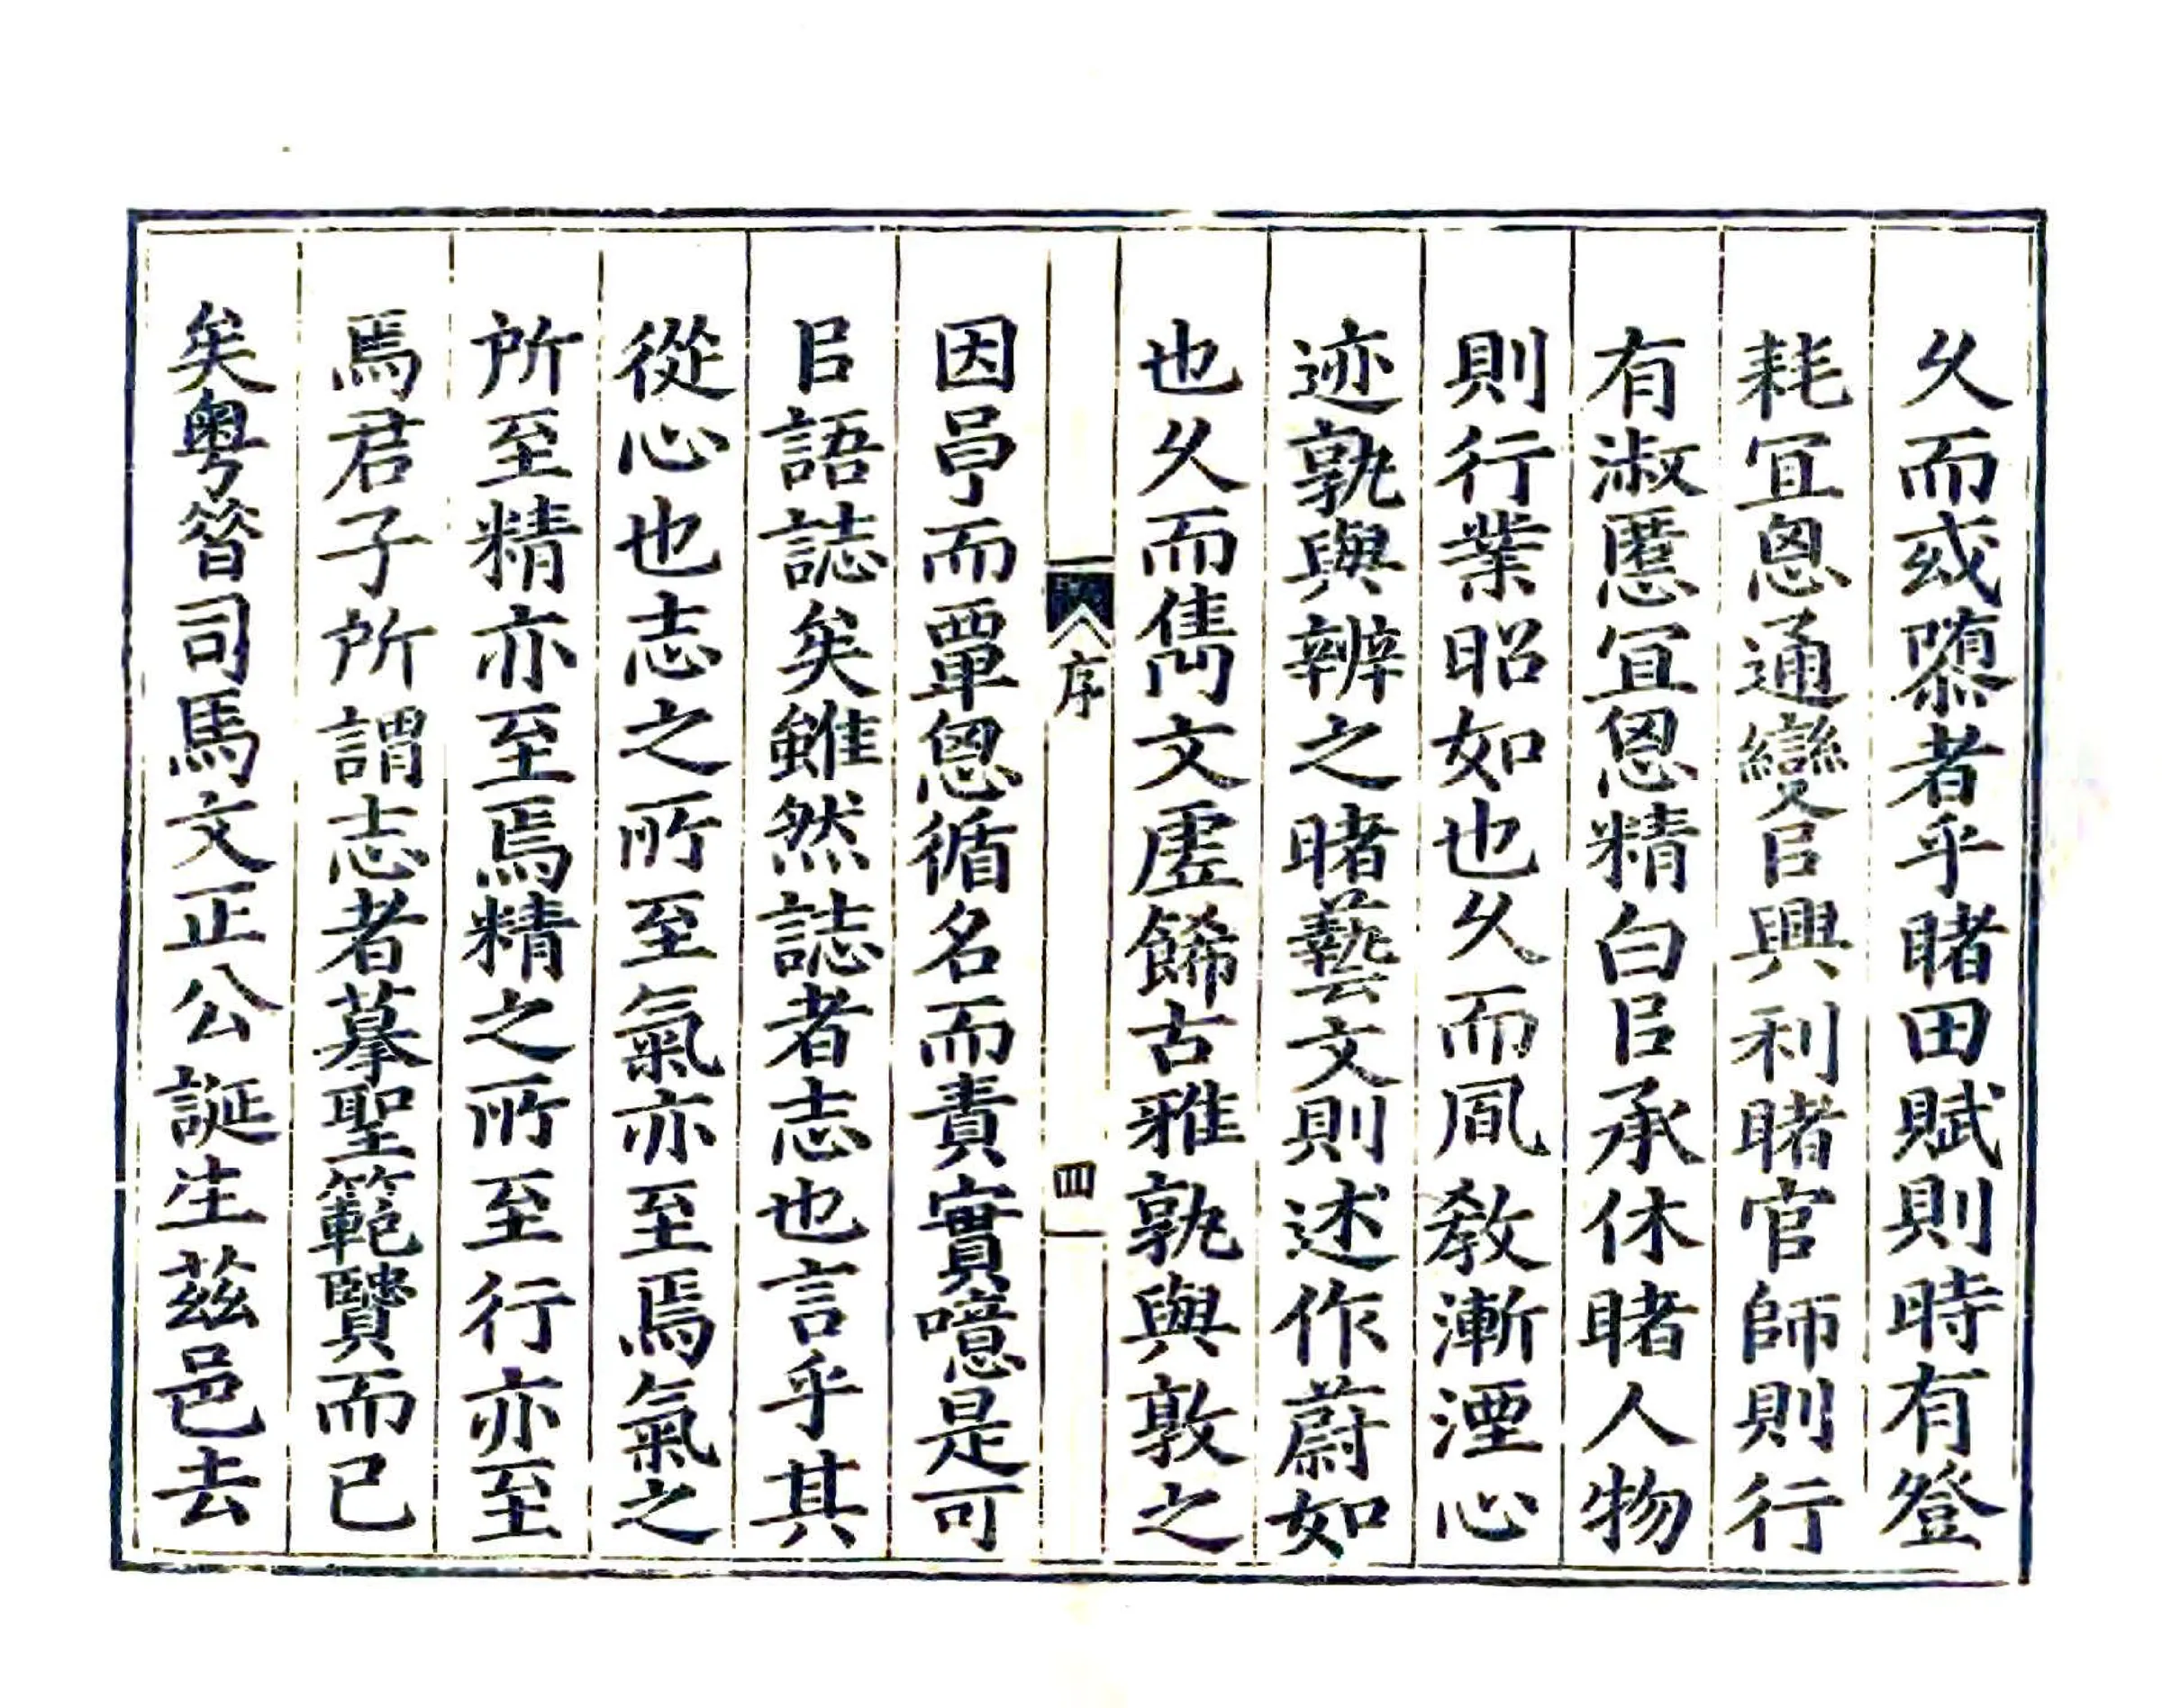 久而或隳者乎睹田賦則時有登
耗宜恖通變㠯興利睹官師則行
有淑慝宜恖精白㠯承休睹人物
則行業昭如也久而風教漸湮心
迹孰與辨之睹藝文則述作蔚如
也久而雋文虛餙古雅孰與敦之
序
四
因㫗而覃恖循名而責實噫是可
㠯語誌矣雖然誌者志也言乎其
從心也志之所至氣亦至焉氣之
所至精亦至焉精之所至行亦至
焉君子所謂志者摹聖範賢而已
矣粤昝司馬文正公誕生茲邑去